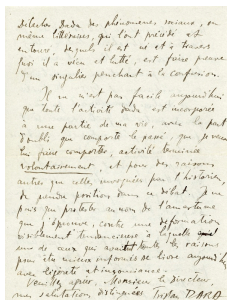 détacher Dada des phénomènes sociaux, ou
même littéraires, qui l'ont précédé et
entouré, desquels il est né et à travers
quoi il a vécu et lutté, est faire preuve
d'un singulier penchant à la confusion.
Il ne m'est pas facile aujourd'hui
que toute l'activité dada est incorporée
à une partie de ma vie, avec la part
d'oubli que comporte le passé, que je veux
activité terminée
volontairement, et pour des raisons
autres que celles invoquées par l'historien
de prendre position dans ce débat. Je ne
puis que protester au nom de l'amertume
que j'éprouve, contre une déformation
visiblement tendancieuse à laquelle
un de ceux qui avait toutes les raisons
pour être mieux informés se livre aujourd'hui
avec légèreté et insouciance.
Veuillez agréer, Monsieur le directeur,
mes salutations distinguées Tristan TZARA